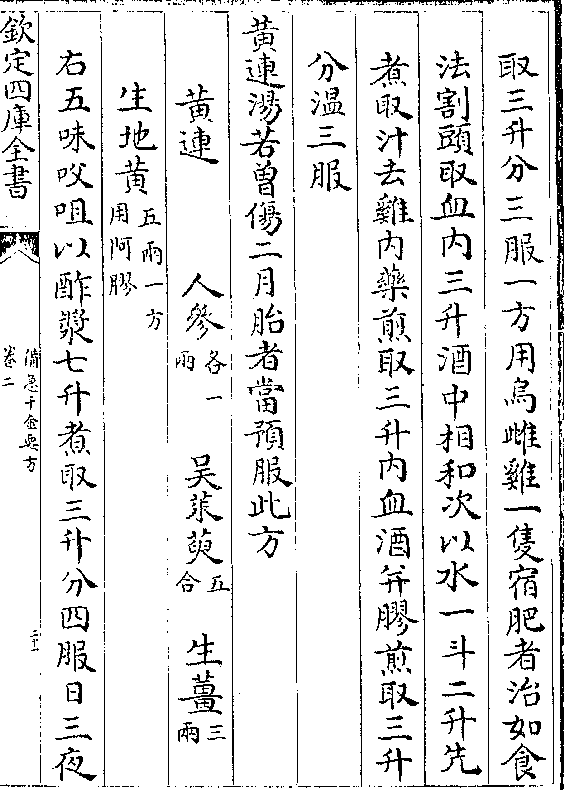 取三升分三服一方用烏雌雞一隻宿肥者治如食
法割頭取血内三升酒中相和次以水一斗二升先
煮取汁去雞内藥煎取三升内血酒并膠煎取三升
分溫三服
黄連湯若曾傷二月胎者當預服此方
黄連 人參各一兩 吴茱萸五合 生薑三兩
生地黄五兩一方用阿膠
右五味㕮咀以酢漿七升煮取三升分四服日三夜
欽定四庫全書
備急千金要方
卷二